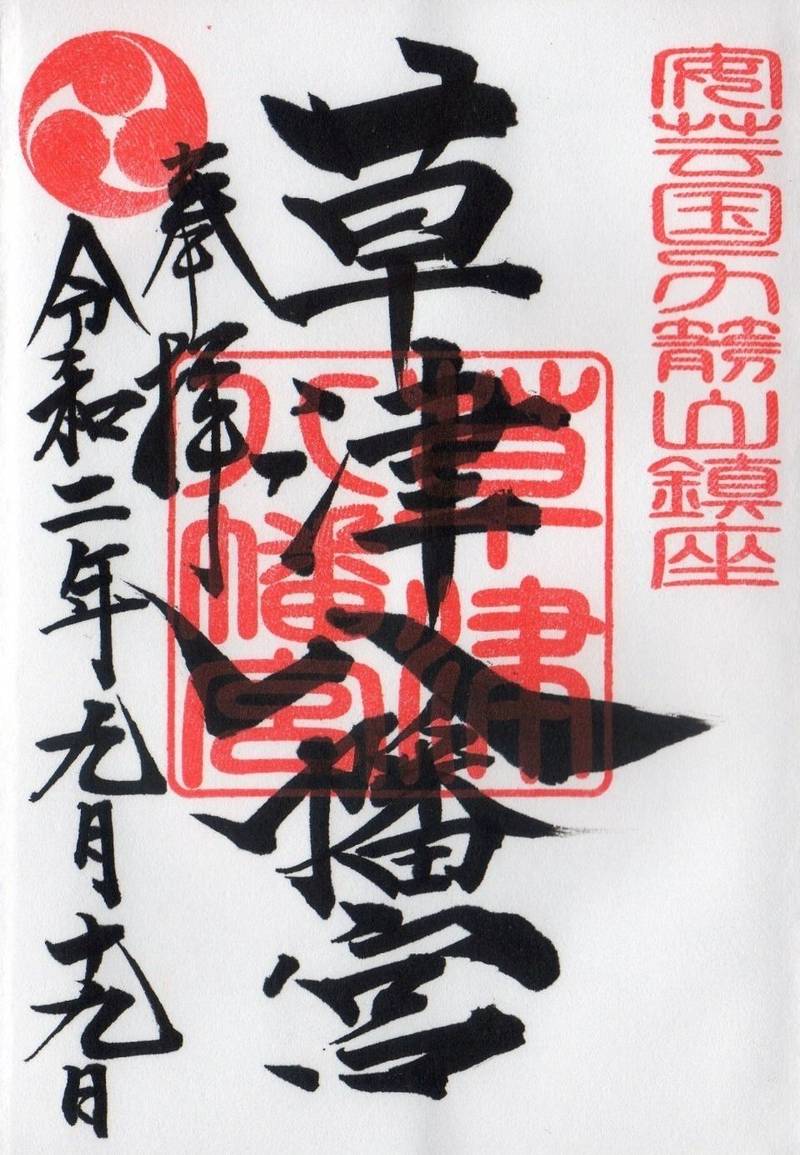 安芸国力箭山鎮座
草津八幡宮
草津
八幡宮
奉拝
令和二年九月十九日